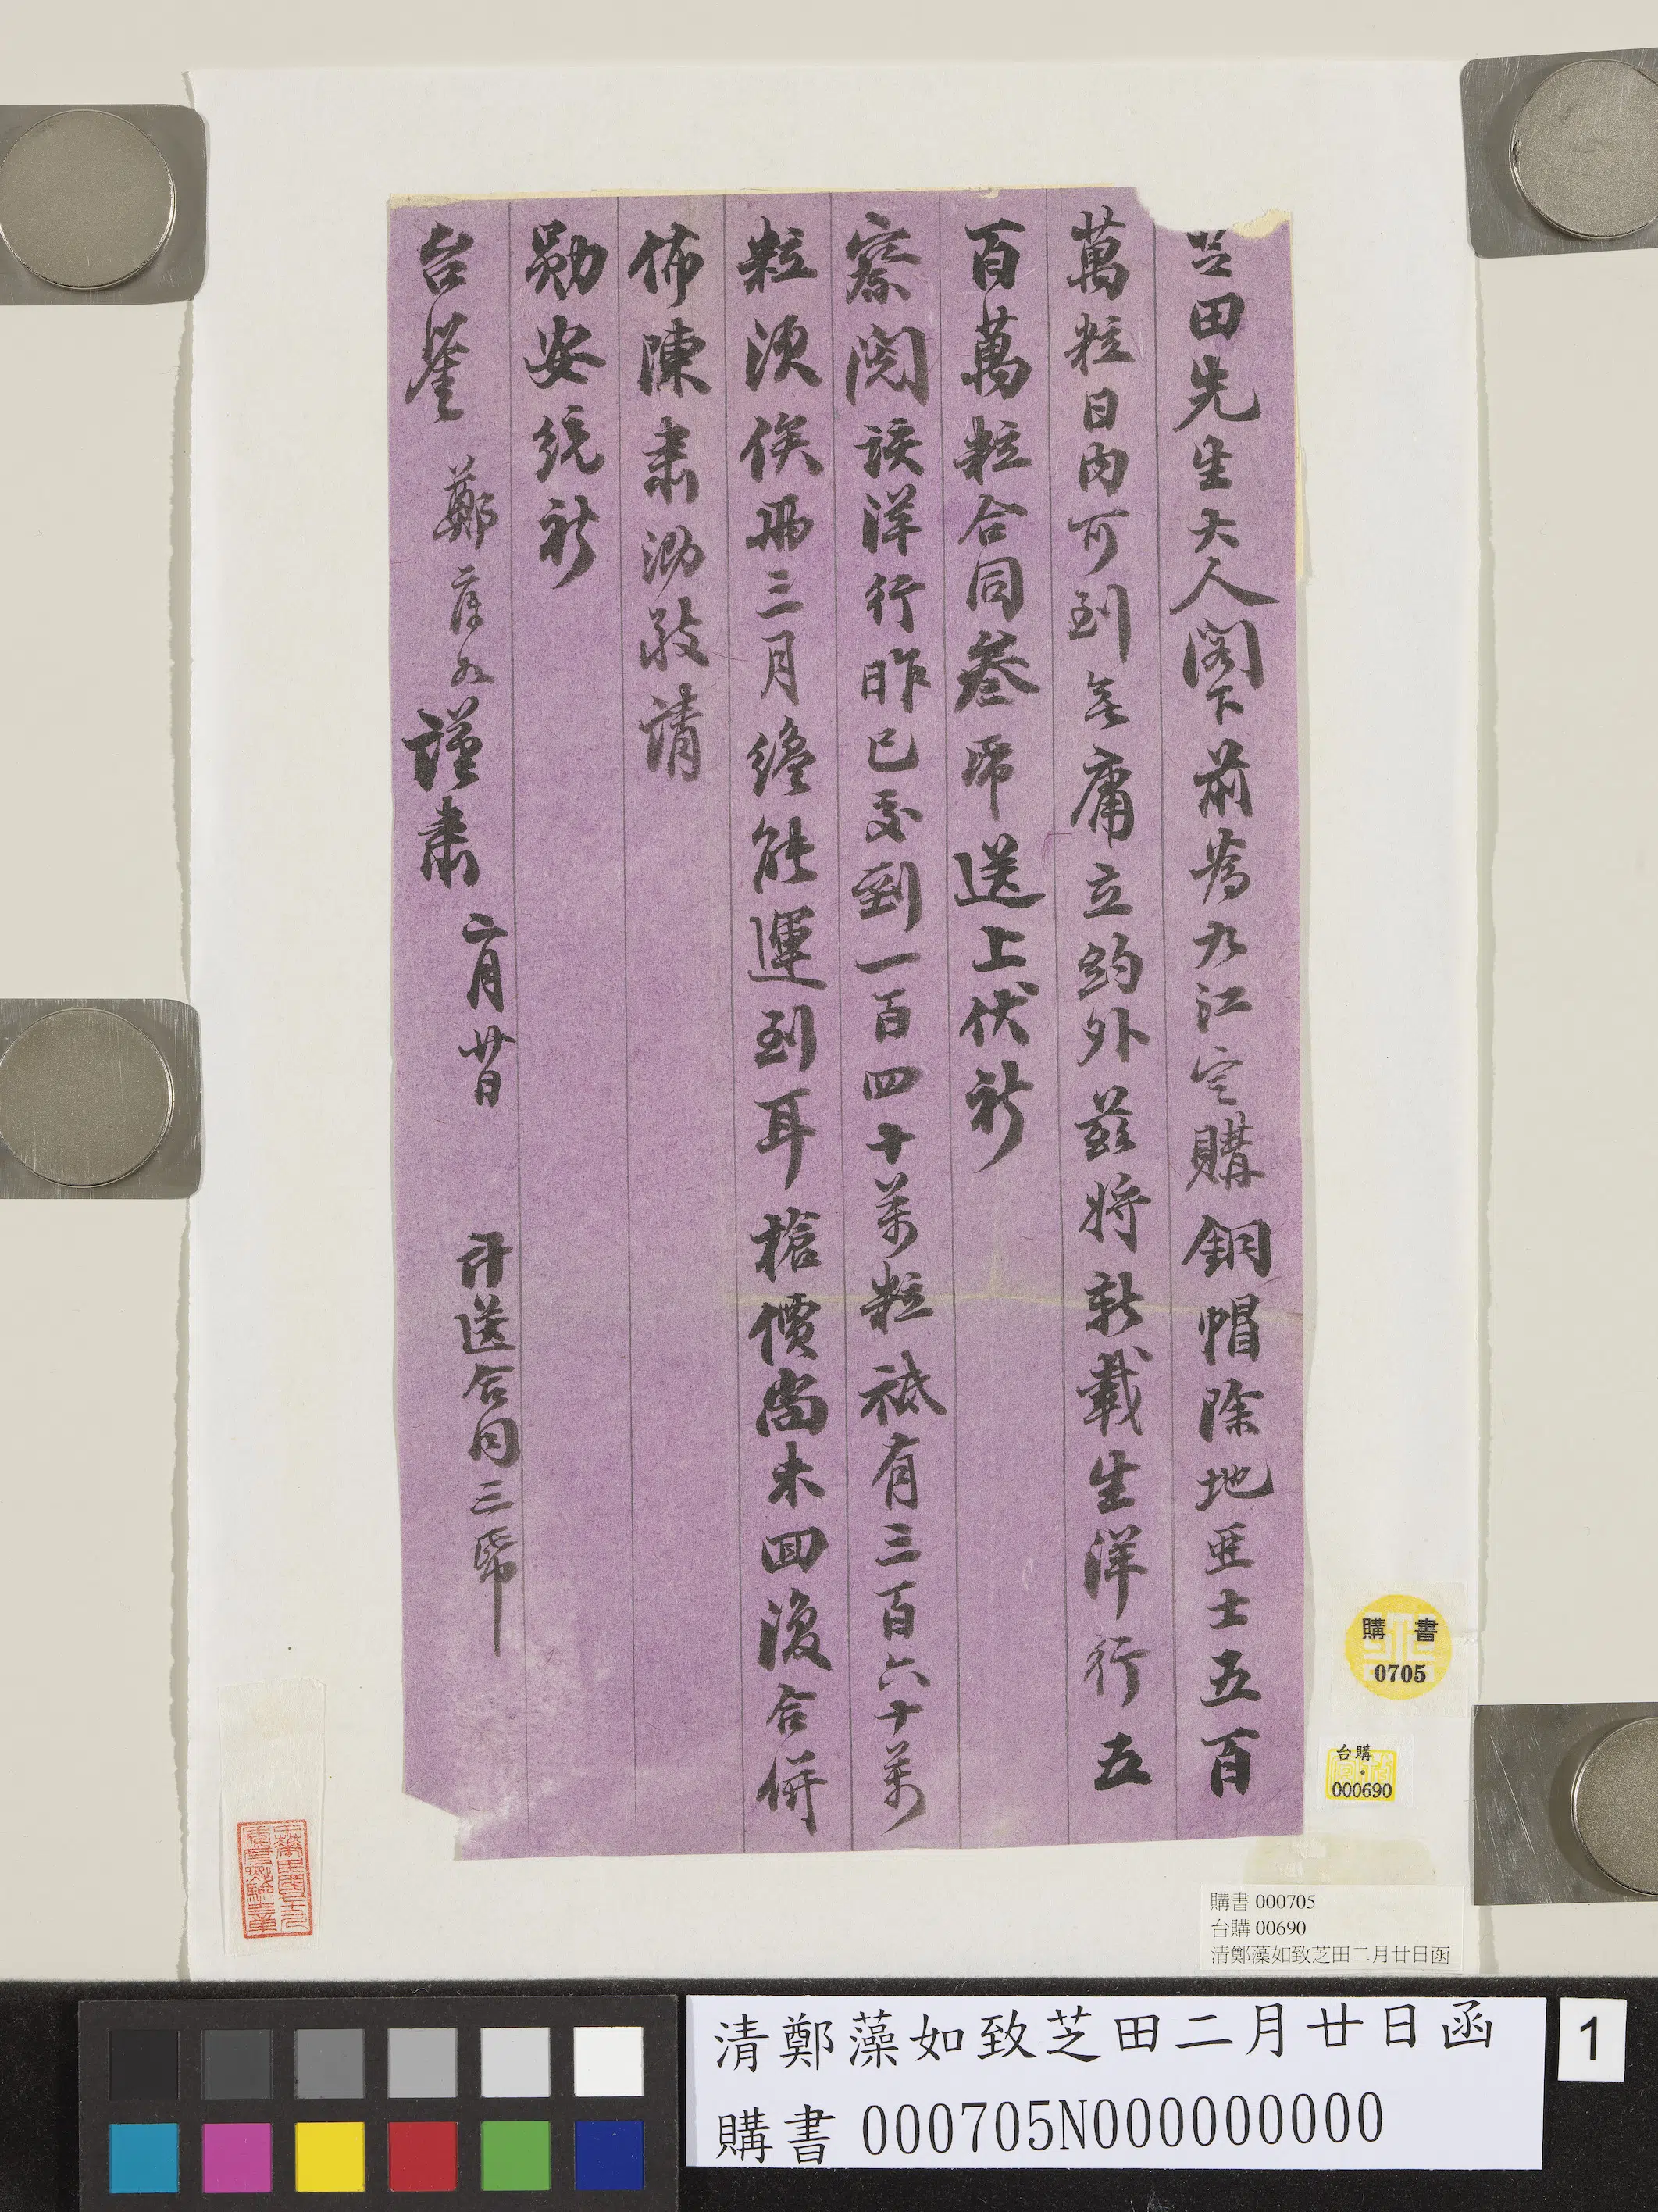 芝田先生大人閣下前為九江定購銅帽除地亞士五百
萬粒日內可到無庸立約外茲將新載生洋行五
百萬粒合同叁帋送上伏祈
察閱該洋行昨已交到一百四十萬粒祗有三百六十萬
粒須俟西三月纔能運到耳槍價尚未回復合併
佈陳肅泐敬請
勛安統祈
台鑒 鄭藻如謹肅 二月廿日 計送合同三帋
購書
0705
台購
000690
購書 000705
台購 00690
清鄭藻如致芝田二月廿日函
清鄭藻如致芝田二月廿日函
購書 000705N000000000
1